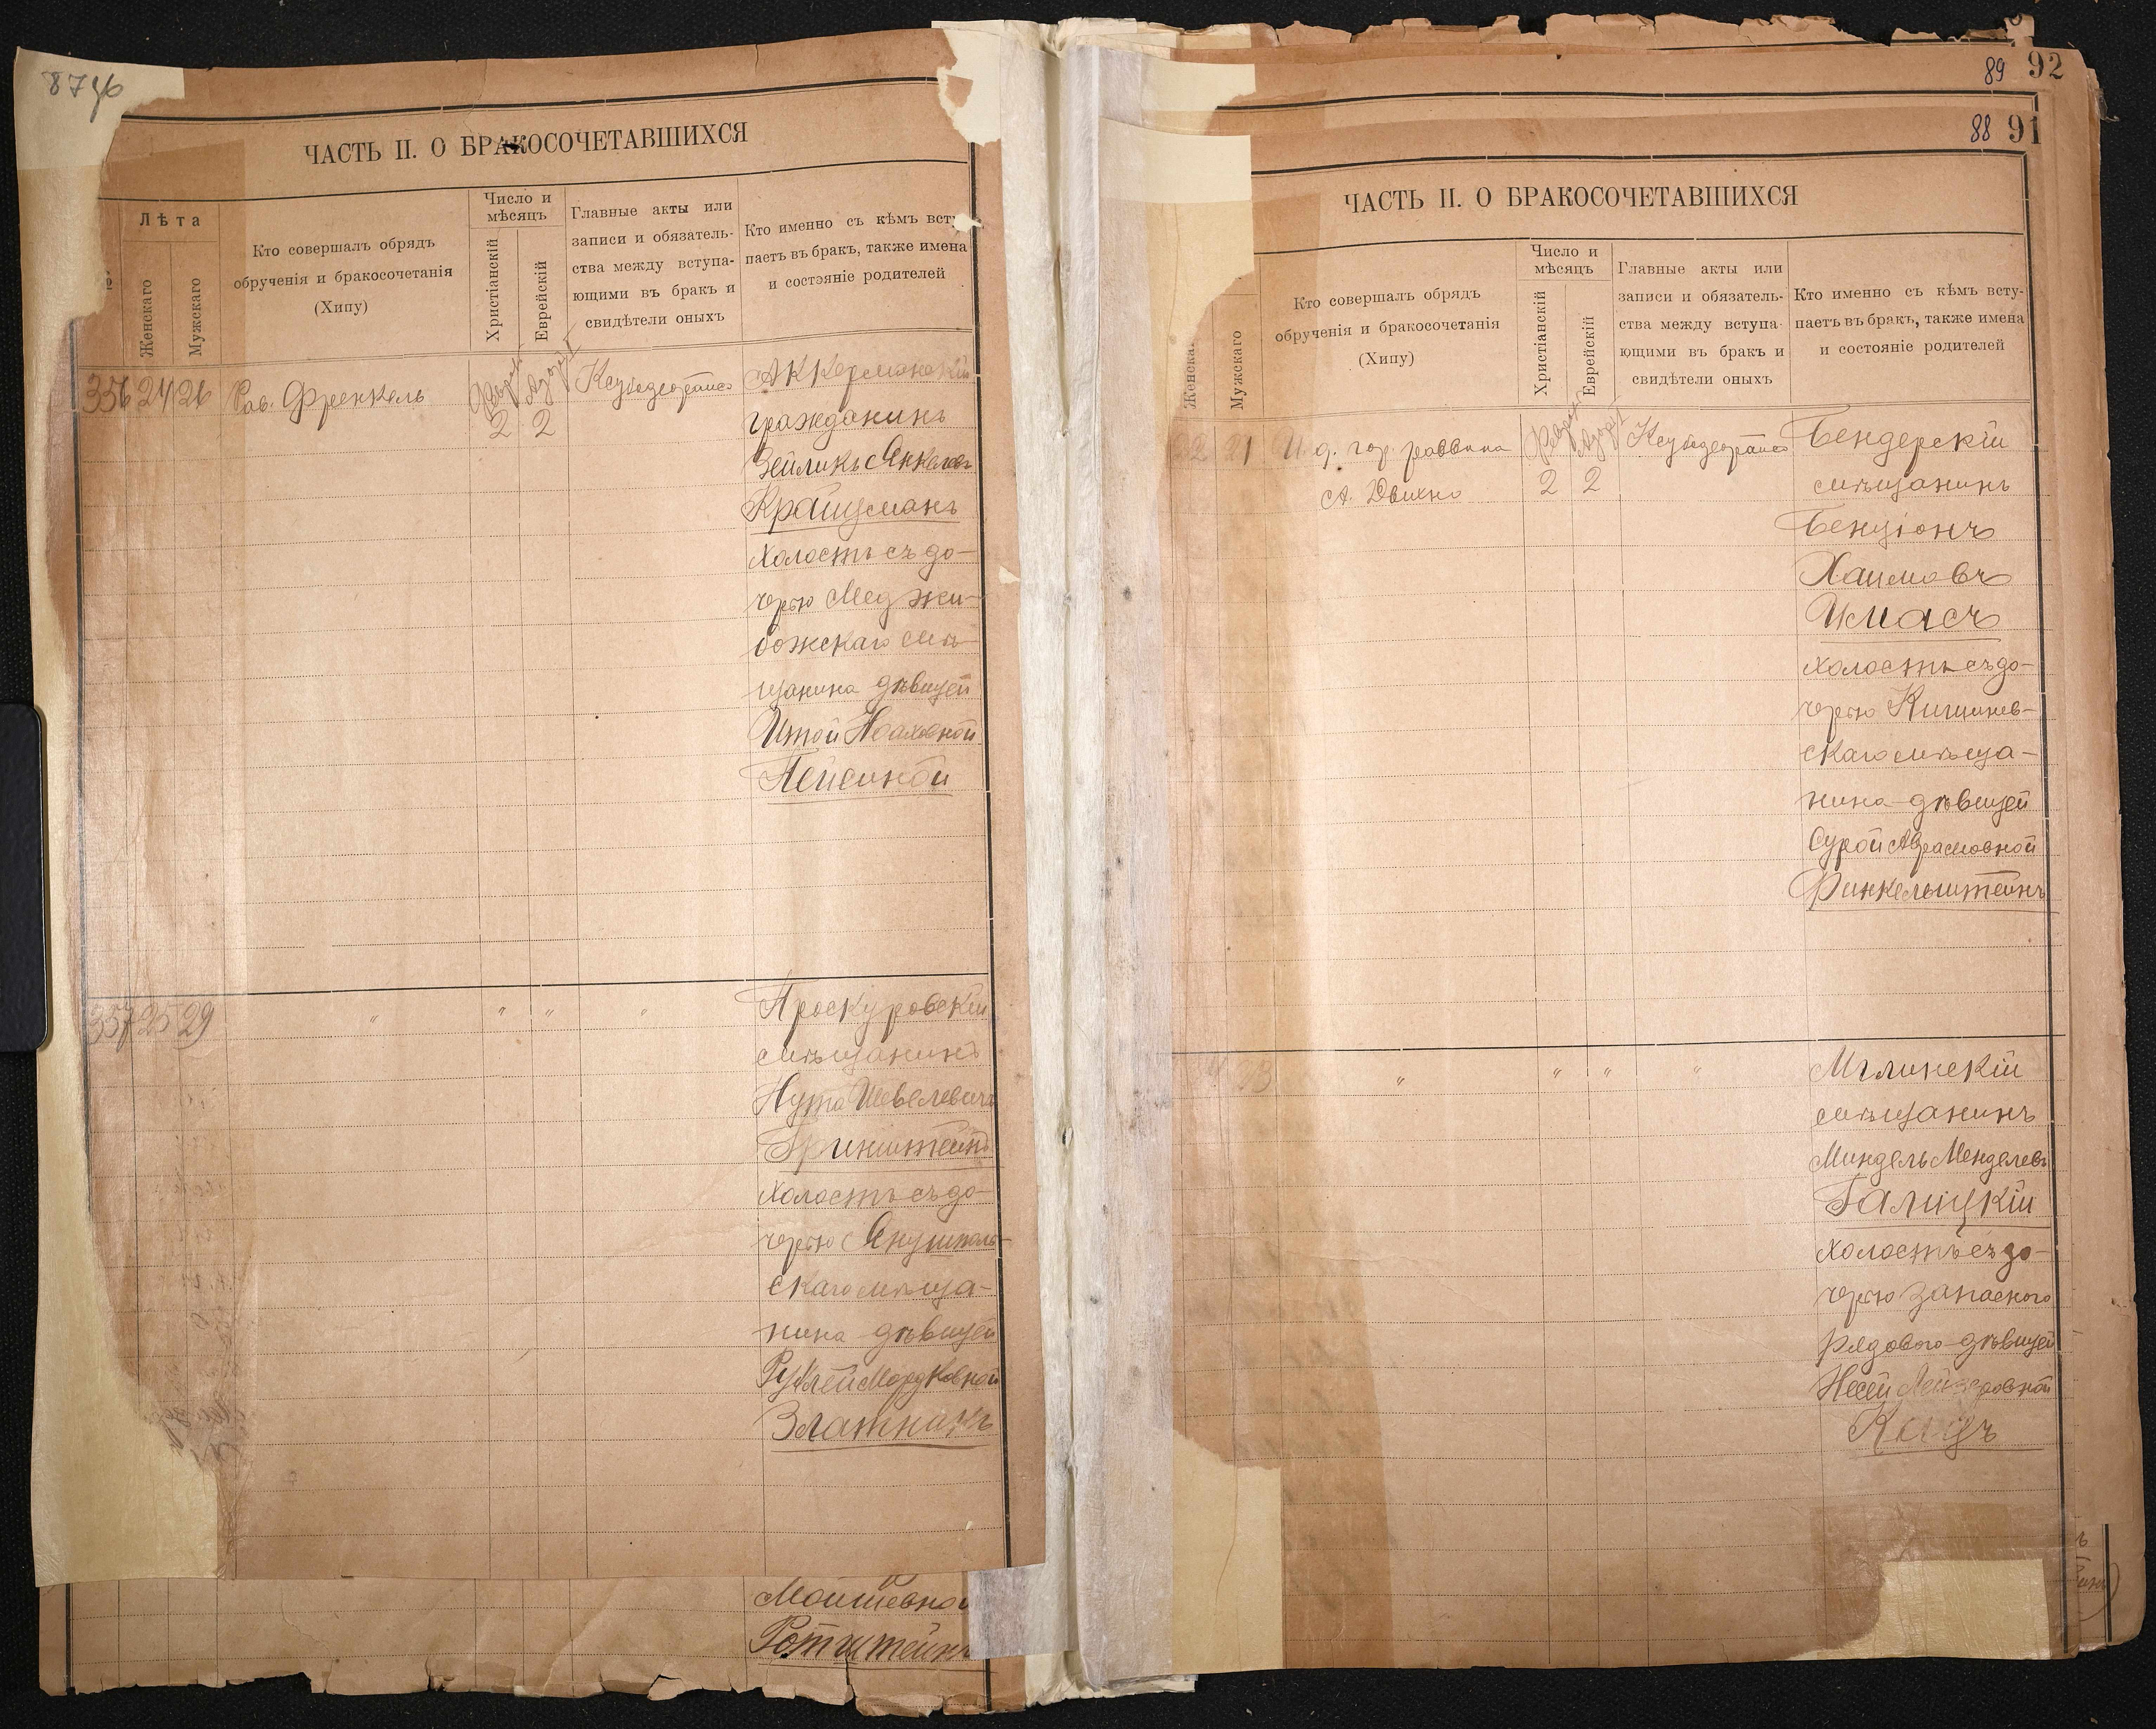 87
ЧАСТЬ II. О БРАКОСОЧЕТАВШИХСЯ
Лѣта
Женскаго
Мужскаго
Кто совершалъ обрядъ
обрученія и бракосочетанія
(Хипу)
Число и
мѣсяцъ
Христіанскій
Еврейскій
Главные акты или
записи и обязатель-
ства между вступа-
ющими въ бракъ и
свидѣтели оныхъ
Кто именно съ кѣмъ всту
паетъ въ бракъ, также имена
и состояніе родителей
356 24 26 Рав. Френкель
2 2
Аккерманскій
гражданинъ
Зейликъ Янкелев
Крайцманъ
холостъ съ до-
черью Меджи-
божскаго мѣ-
щанина дѣвицей
Итой Ноаховной
Пейсиной
357 25 29 " " " "
Проскуровскій
мѣщанинъ
Нута Шевелевичъ
Гринштейнъ
холостъ съ до-
черью Янушполь-
скаго мѣща-
нина дѣвицей
Рухлей Мордковной
Златникъ
Мошковной
Ротштейнъ
89 92
88 91
ЧАСТЬ II. О БРАКОСОЧЕТАВШИХСЯ
Женска
Мужскаго
Кто совершалъ обрядъ
обрученія и бракосочетанія
(Хипу)
Число и
мѣсяцъ
Христіанскій
Еврейскій
Главные акты или
записи и обязатель-
ства между вступа-
ющими въ бракъ и
свидѣтели оныхъ
Кто именно съ кѣмъ всту-
паетъ въ бракъ, также имена
и состояніе родителей
22 21 И. д. гор. раввина
2 2
Бендерскій
мѣщанинъ
Бенціонъ
Хаимовъ
Имасъ
холостъ съ до-
черью Кишинев-
скаго мѣща-
нина дѣвицей
Сурой Абрамовной
Финкельштейнъ
" " " "
Мглинскій
мѣщанинъ
Миндель Менделевъ
Галицкій
холостъ съ до-
черью запасного
рядового дѣвицей
Несей Лейзеровной
Кацъ